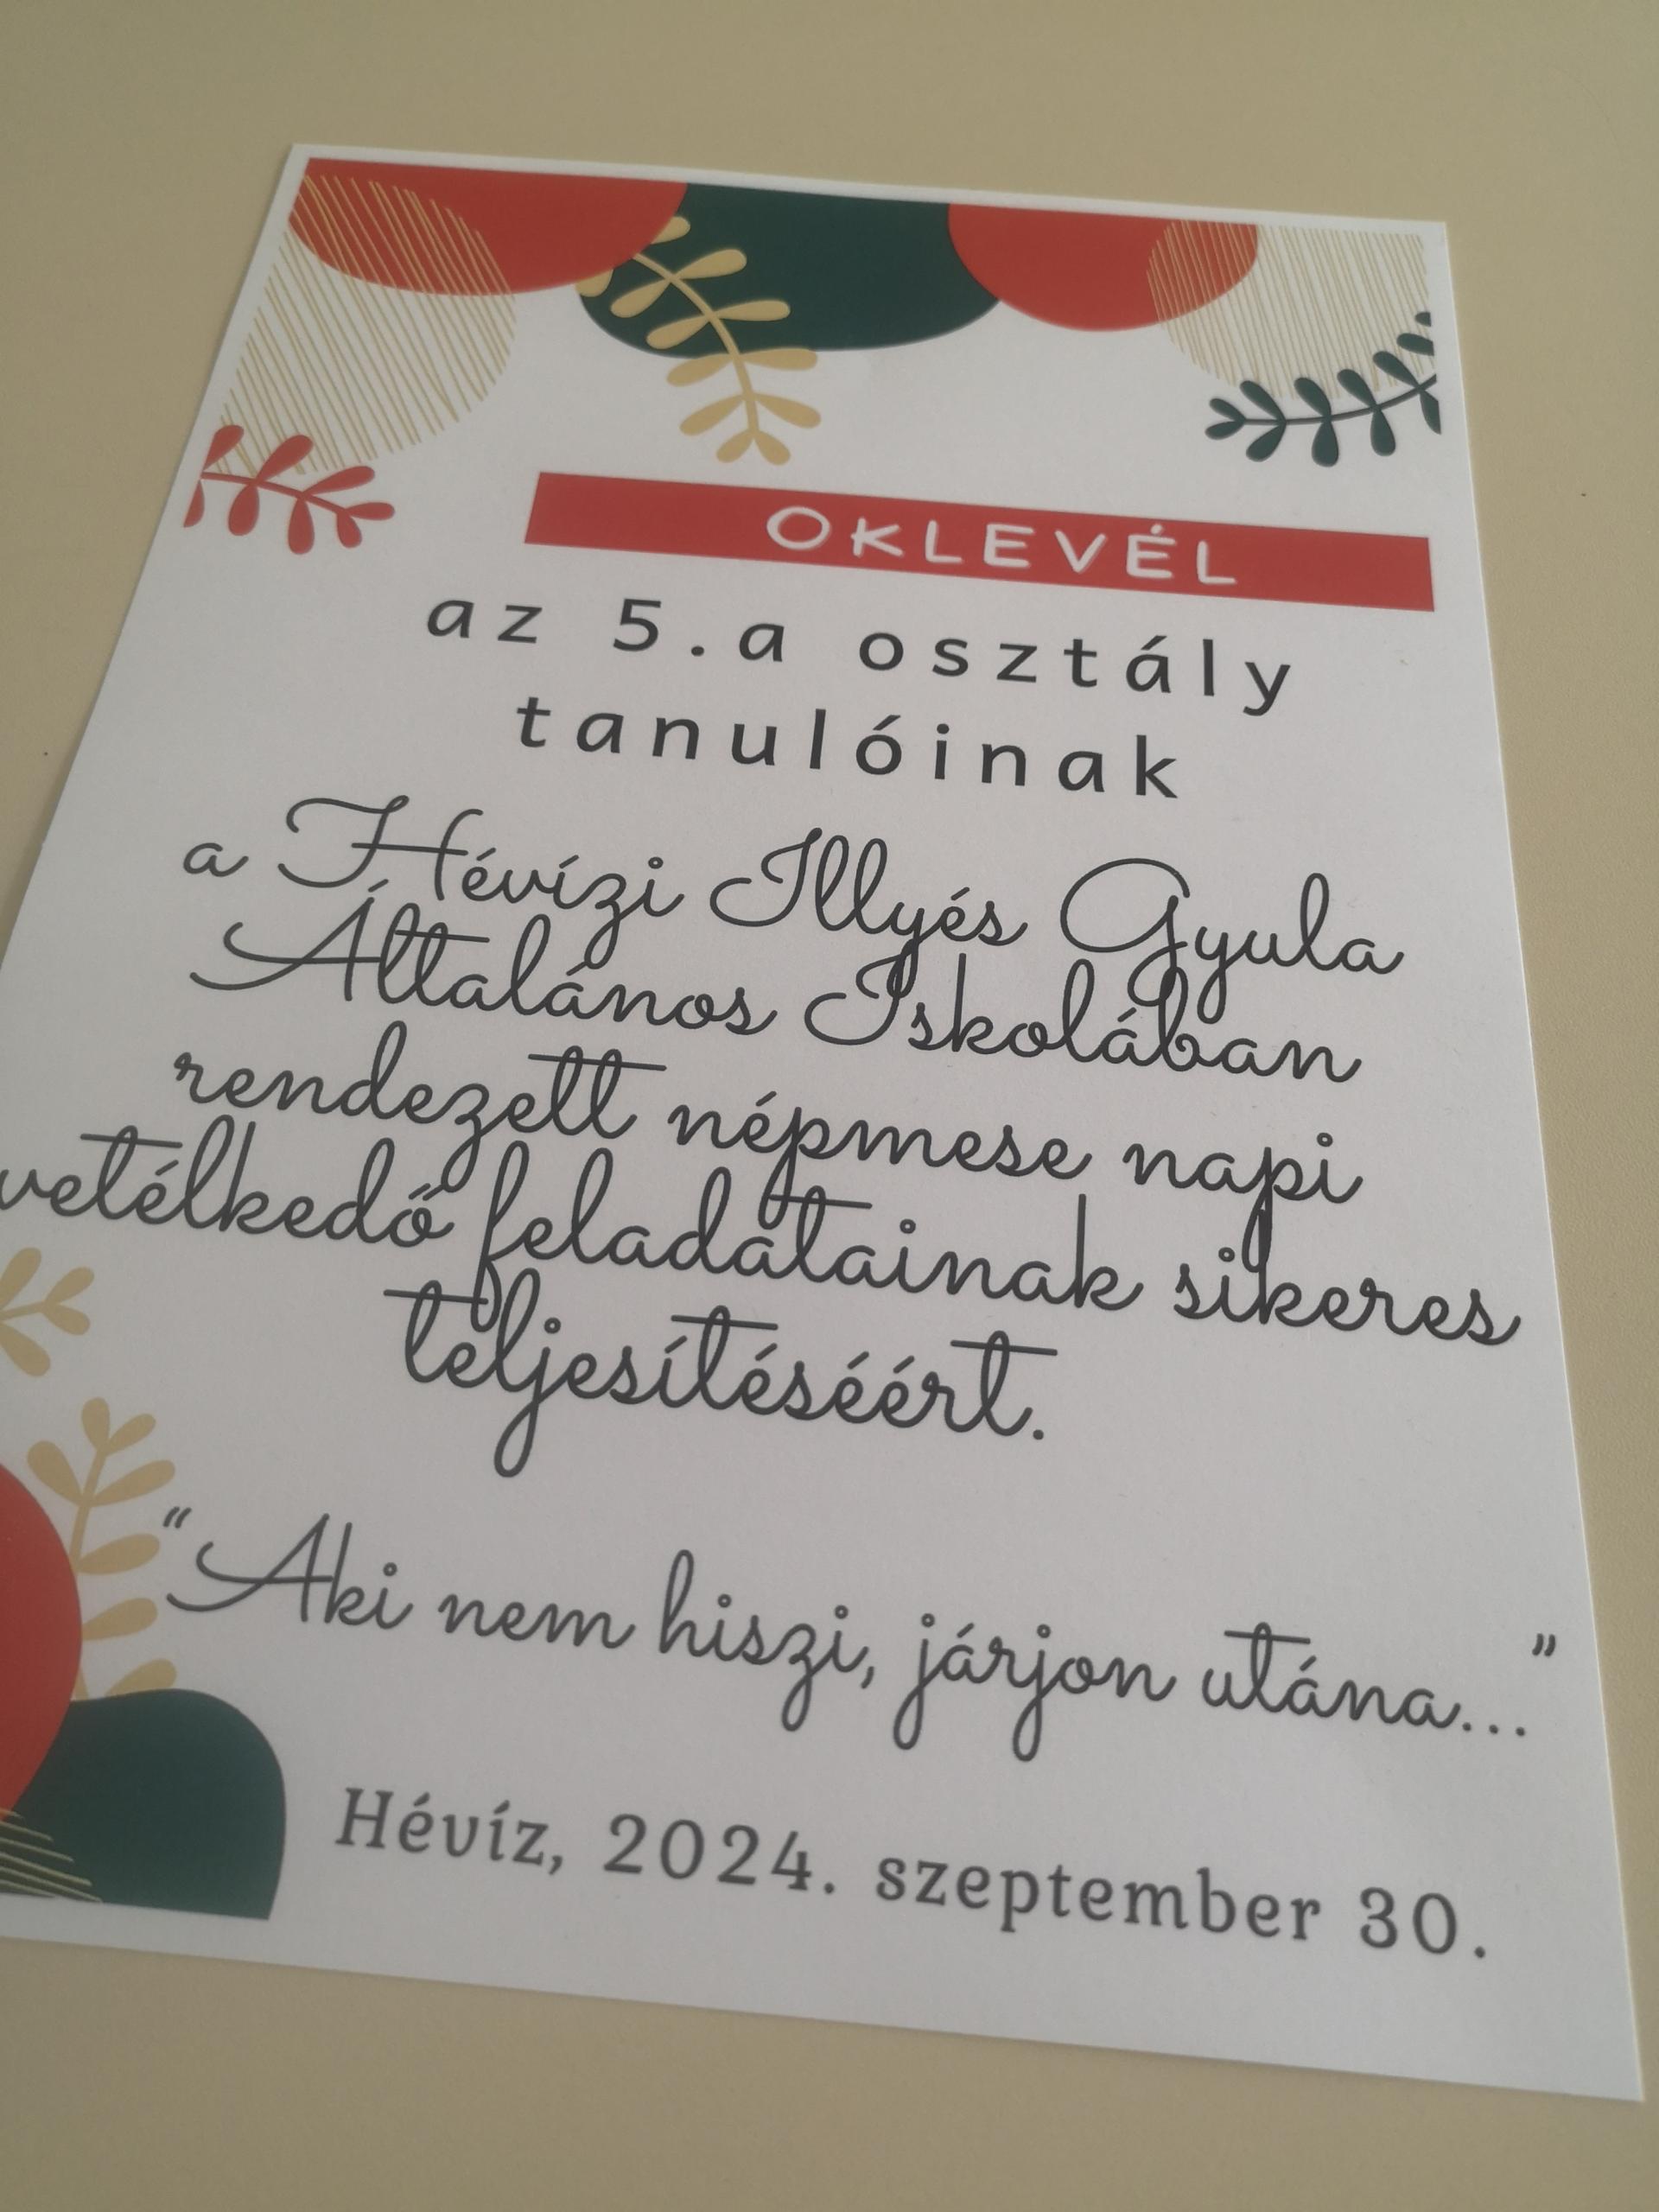 OKLEVÉL
az 5.a osztály
tanulóinak
a Hévízi Illyés Gyula
Általános Iskolában
rendezett népmese napi
vetélkedő feladatainak sikeres
teljesítéséért.
“Aki nem hiszi, járjon utána...”
Hévíz, 2024. szeptember 30.